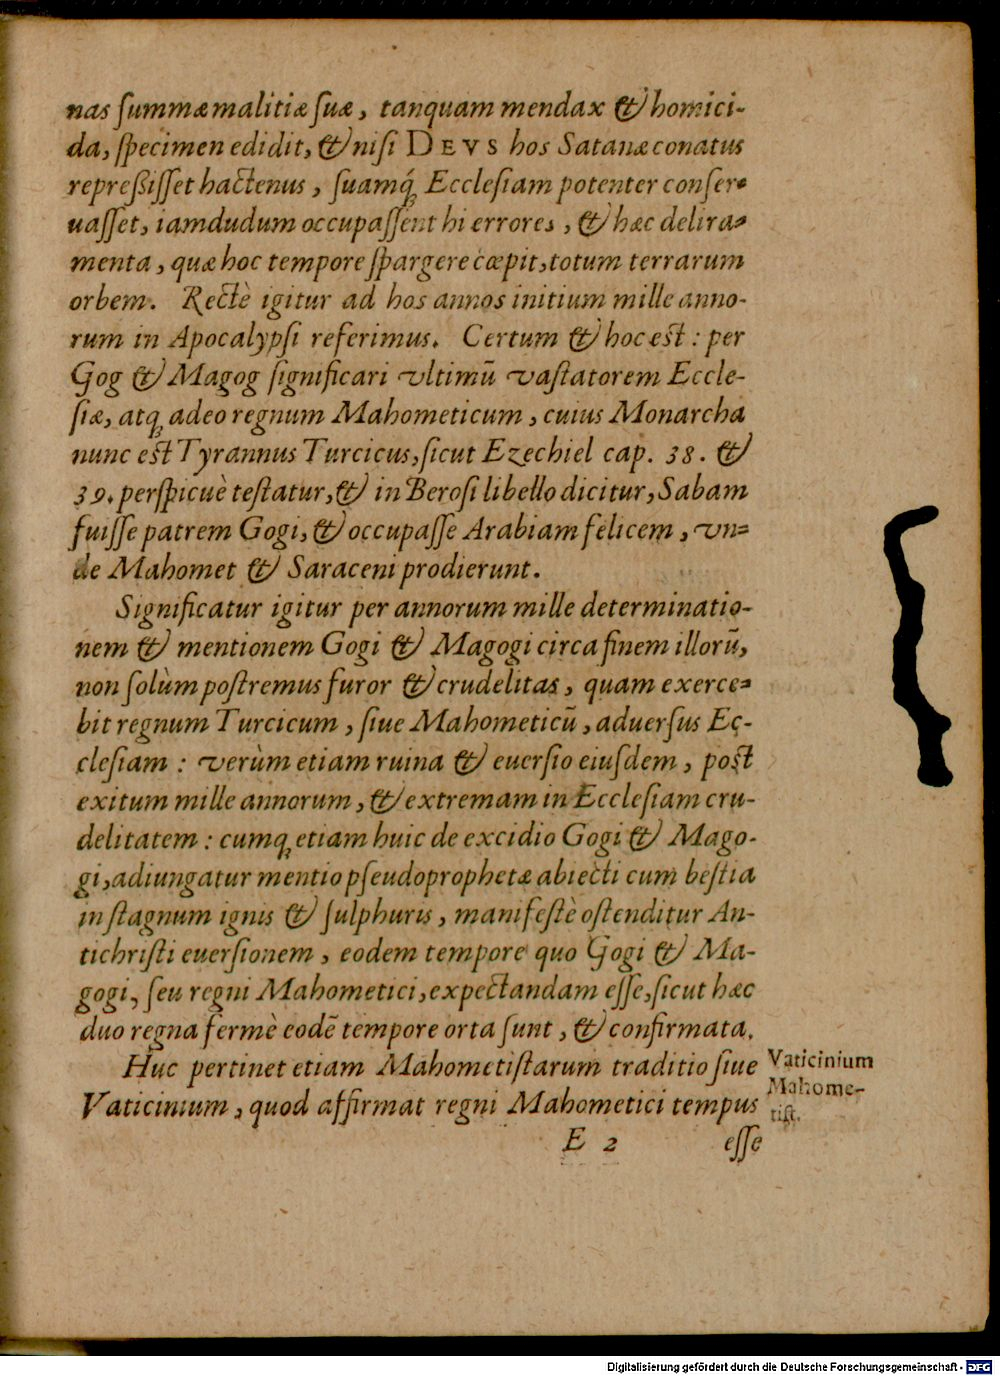 nas ſummæ malitiæ ſuæ, tanquam mendax & homici-
da, ſpecimen edidit, & niſi DEVS hos Satanæ conatus
repreßiſſet hactenus, ſuamq́; Eccleſiam potenter conſer-
uaſſet, iamdudum occupaſſent hi errores, & hæc delira-
menta, quæ hoc tempore ſpargere cœpit, totum terrarum
orbem. Rectè igitur ad hos annos initium mille anno-
rum in Apocalypſi referimus. Certum & hoc est: per
Gog & Magog ſignificari vltimū vaſtatorem Eccle-
ſiæ, atq; adeo regnum Mahometicum, cuius Monarcha
nunc est Tyrannus Turcicus, ſicut Ezechiel cap. 38. &
39. perſpicuè teſtatur, & in Beroſi libello dicitur, Sabam
fuiſſe patrem Gogi, & occupaſſe Arabiam felicem, vn-
de Mahomet & Saraceni prodierunt.
Significatur igitur per annorum mille determinatio-
nem & mentionem Gogi & Magogi circa finem illorū,
non ſolùm poſtremus furor & crudelitas, quam exerce-
bit regnum Turcicum, ſiue Mahometicū, aduerſus Ec-
cleſiam: verùm etiam ruina & euerſio eiuſdem, post
exitum mille annorum, & extremam in Eccleſiam cru-
delitatem: cumq; etiam huic de excidio Gogi & Mago-
gi, adiungatur mentio pſeudoprophetæ abiecti cum beſtia
in ſtagnum ignis & ſulphuris, manifeſtè oſtenditur An-
tichriſti euerſionem, eodem tempore quo Gogi & Ma-
gogi, ſeu regni Mahometici, expectandam eſſe, ſicut hæc
duo regna fermè eodē tempore orta ſunt, & confirmata.
Huc pertinet etiam Mahometiſtarum traditio ſiue
Vaticinium, quod affirmat regni Mahometici tempus
Vaticinium
Mahome-
tiſt.
E 2
eſſe
Digitalisierung gefördert durch die Deutsche Forschungsgemeinschaft - DFG